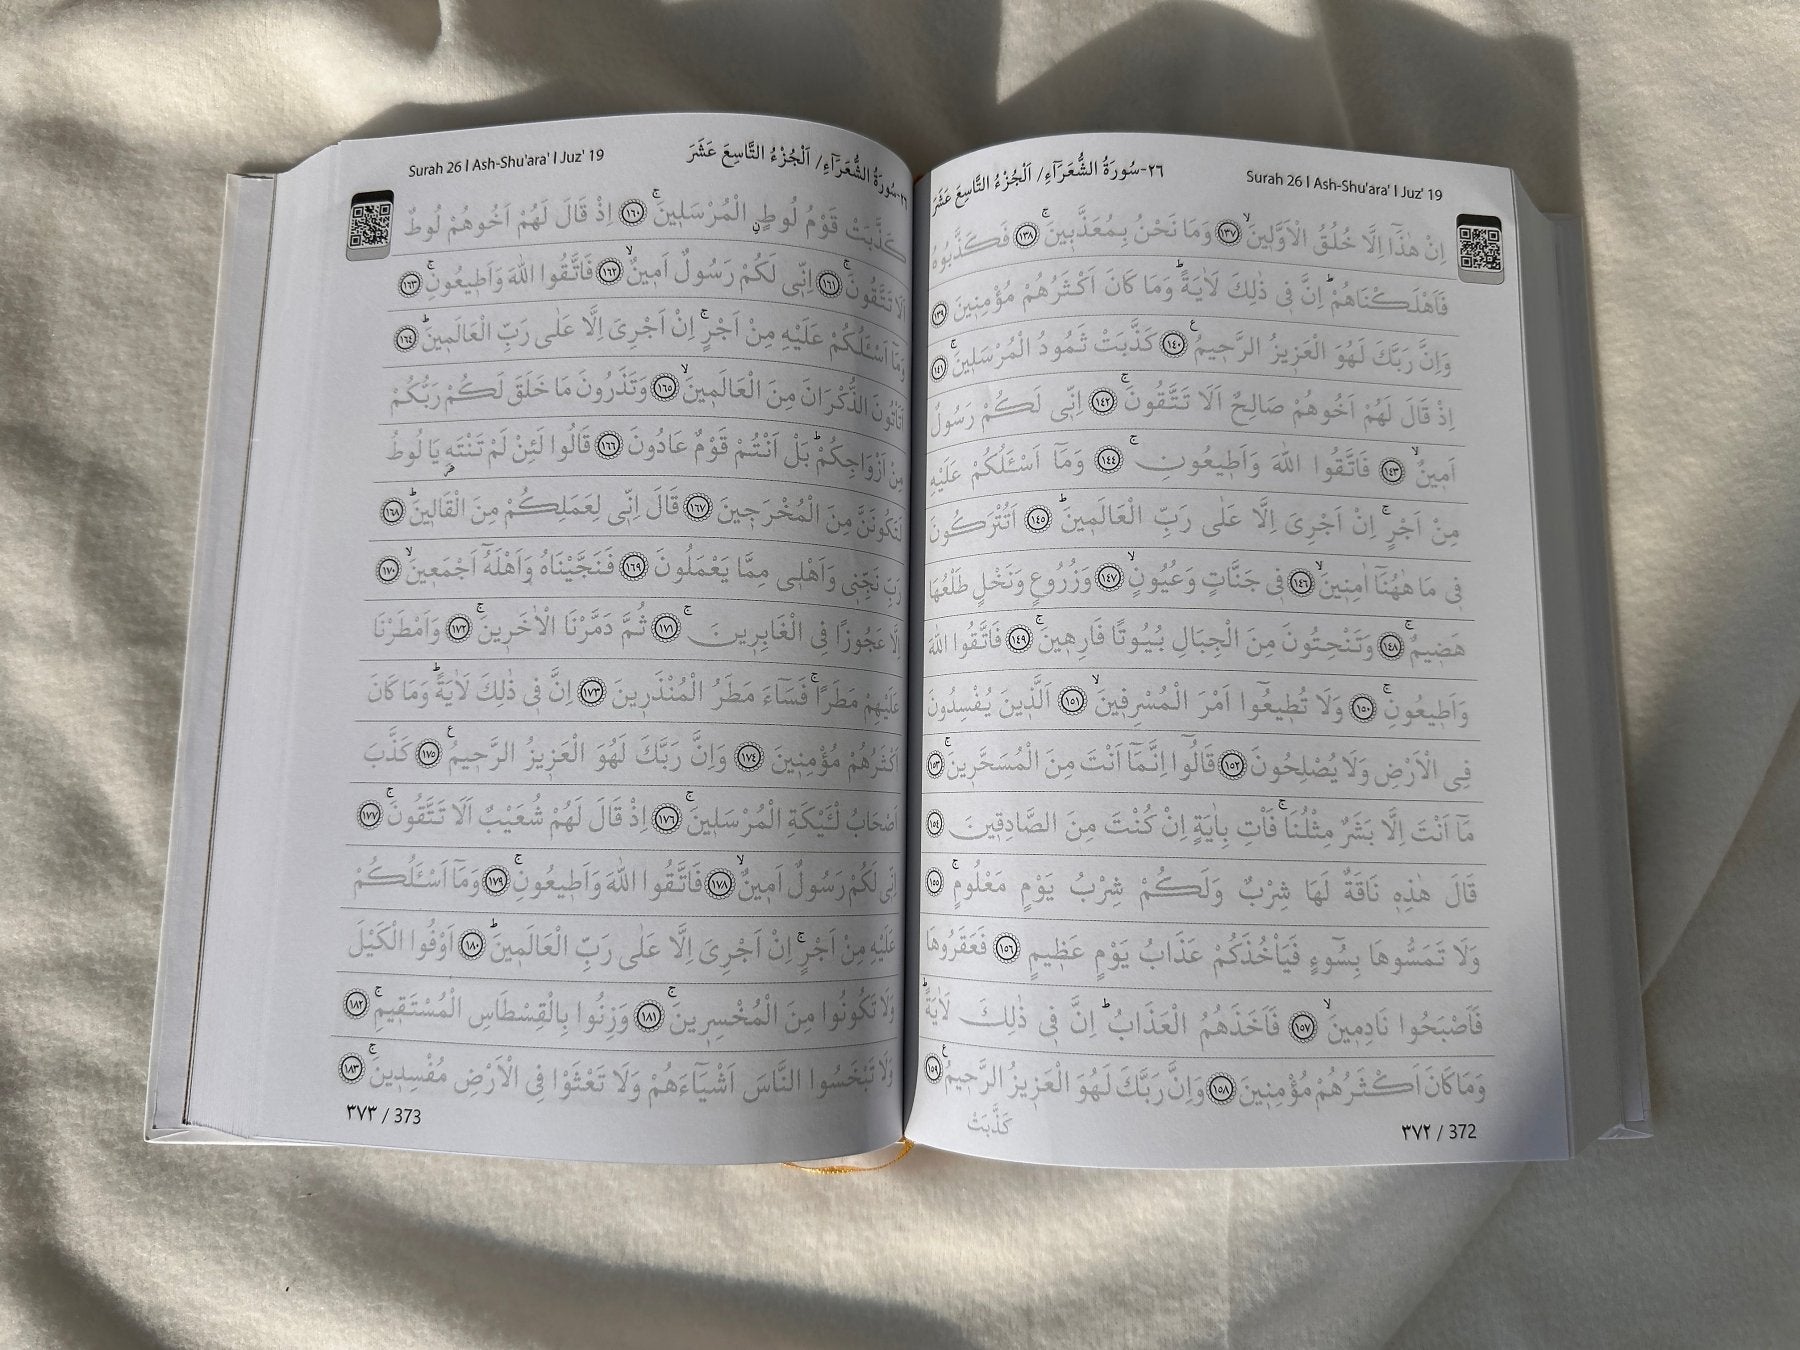 ٢٦-سُورَةُ الشُّعَرَاءِ/ اَلْجُزْءُ التَّاسِعَ عَشَرَ
Surah 26 I Ash-Shu'ara' I Juz' 19
اِنْ هٰذَٓا اِلَّا خُلُقُ الْاَوَّل۪ينَۙ ١٣٧ وَمَا نَحْنُ بِمُعَذَّب۪ينَۚ ١٣٨ فَكَذَّبُوهُ
فَاَهْلَكْنَاهُمْۜ اِنَّ ف۪ي ذٰلِكَ لَاٰيَةًۜ وَمَا كَانَ اَكْثَرُهُمْ مُؤْمِن۪ينَ ١٣٩
وَاِنَّ رَبَّكَ لَهُوَ الْعَز۪يزُ الرَّح۪يمُ۟ ١٤٠ كَذَّبَتْ ثَمُودُ الْمُرْسَل۪ينَۚ ١٤١
اِذْ قَالَ لَهُمْ اَخُوهُمْ صَالِحٌ اَلَا تَتَّقُونَۚ ١٤٢ اِنّ۪ي لَكُمْ رَسُولٌ
اَم۪ينٌۙ ١٤٣ فَاتَّقُوا اللّٰهَ وَاَط۪يعُونِۚ ١٤٤ وَمَٓا اَسْـَٔلُكُمْ عَلَيْهِ
مِنْ اَجْرٍۚ اِنْ اَجْرِيَ اِلَّا عَلٰى رَبِّ الْعَالَم۪ينَۜ ١٤٥ اَتُتْرَكُونَ
ف۪ي مَا هٰهُنَٓا اٰمِن۪ينَۙ ١٤٦ ف۪ي جَنَّاتٍ وَعُيُونٍۙ ١٤٧ وَزُرُوعٍ وَنَخْلٍ طَلْعُهَا
هَض۪يمٌۚ ١٤٨ وَتَنْحِتُونَ مِنَ الْجِبَالِ بُيُوتًا فَارِه۪ينَۚ ١٤٩ فَاتَّقُوا اللّٰهَ
وَاَط۪يعُونِۚ ١٥٠ وَلَا تُط۪يعُٓوا اَمْرَ الْمُسْرِف۪ينَۙ ١٥١ اَلَّذ۪ينَ يُفْسِدُونَ
فِي الْاَرْضِ وَلَا يُصْلِحُونَ ١٥٢ قَالُٓوا اِنَّمَٓا اَنْتَ مِنَ الْمُسَحَّر۪ينَۚ ١٥٣
مَٓا اَنْتَ اِلَّا بَشَرٌ مِثْلُنَاۚ فَاْتِ بِاٰيَةٍ اِنْ كُنْتَ مِنَ الصَّادِق۪ينَ ١٥٤
قَالَ هٰذِه۪ نَاقَةٌ لَهَا شِرْبٌ وَلَكُمْ شِرْبُ يَوْمٍ مَعْلُومٍۚ ١٥٥
وَلَا تَمَسُّوهَا بِسُٓوءٍ فَيَأْخُذَكُمْ عَذَابُ يَوْمٍ عَظ۪يمٍ ١٥٦ فَعَقَرُوهَا
فَاَصْبَحُوا نَادِم۪ينَۙ ١٥٧ فَاَخَذَهُمُ الْعَذَابُۜ اِنَّ ف۪ي ذٰلِكَ لَاٰيَةًۜ
وَمَا كَانَ اَكْثَرُهُمْ مُؤْمِن۪ينَ ١٥٨ وَاِنَّ رَبَّكَ لَهُوَ الْعَز۪يزُ الرَّح۪يمُ۟ ١٥٩
كَذَّبَتْ
٣٧٢ / 372
٢٦-سُورَةُ الشُّعَرَٓاءِ/ اَلْجُزْءُ التَّاسِعَ عَشَرَ
Surah 26 I Ash-Shu'ara' I Juz' 19
كَذَّبَتْ قَوْمُ لُوطٍۨ الْمُرْسَل۪ينَۚ ١٦٠ اِذْ قَالَ لَهُمْ اَخُوهُمْ لُوطٌ
اَلَا تَتَّقُونَۚ ١٦١ اِنّ۪ي لَكُمْ رَسُولٌ اَم۪ينٌۙ ١٦٢ فَاتَّقُوا اللّٰهَ وَاَط۪يعُونِۚ ١٦٣
وَمَٓا اَسْـَٔلُكُمْ عَلَيْهِ مِنْ اَجْرٍۚ اِنْ اَجْرِيَ اِلَّا عَلٰى رَبِّ الْعَالَم۪ينَۜ ١٦٤
اَتَأْتُونَ الذُّكْرَانَ مِنَ الْعَالَم۪ينَۙ ١٦٥ وَتَذَرُونَ مَا خَلَقَ لَكُمْ رَبُّكُمْ
مِنْ اَزْوَاجِكُمْۜ بَلْ اَنْتُمْ قَوْمٌ عَادُونَ ١٦٦ قَالُوا لَئِنْ لَمْ تَنْتَهِ يَا لُوطُ
لَتَكُونَنَّ مِنَ الْمُخْرَج۪ينَ ١٦٧ قَالَ اِنّ۪ي لِعَمَلِكُمْ مِنَ الْقَال۪ينَۜ ١٦٨
رَبِّ نَجِّن۪ي وَاَهْل۪ي مِمَّا يَعْمَلُونَ ١٦٩ فَنَجَّيْنَاهُ وَاَهْلَهُٓ اَجْمَع۪ينَۙ ١٧٠
اِلَّا عَجُوزًا فِي الْغَابِر۪ينَۚ ١٧١ ثُمَّ دَمَّرْنَا الْاٰخَر۪ينَۚ ١٧٢ وَاَمْطَرْنَا
عَلَيْهِمْ مَطَرًاۚ فَسَٓاءَ مَطَرُ الْمُنْذَر۪ينَ ١٧٣ اِنَّ ف۪ي ذٰلِكَ لَاٰيَةًۜ وَمَا كَانَ
اَكْثَرُهُمْ مُؤْمِن۪ينَ ١٧٤ وَاِنَّ رَبَّكَ لَهُوَ الْعَز۪يزُ الرَّح۪يمُ۟ ١٧٥ كَذَّبَ
اَصْحَابُ لْـَٔيْكَةِ الْمُرْسَل۪ينَۚ ١٧٦ اِذْ قَالَ لَهُمْ شُعَيْبٌ اَلَا تَتَّقُونَۚ ١٧٧
اِنّ۪ي لَكُمْ رَسُولٌ اَم۪ينٌۙ ١٧٨ فَاتَّقُوا اللّٰهَ وَاَط۪يعُونِۚ ١٧٩ وَمَٓا اَسْـَٔلُكُمْ
عَلَيْهِ مِنْ اَجْرٍۚ اِنْ اَجْرِيَ اِلَّا عَلٰى رَبِّ الْعَالَم۪ينَۜ ١٨٠ اَوْفُوا الْكَيْلَ
وَلَا تَكُونُوا مِنَ الْمُخْسِر۪ينَۚ ١٨١ وَزِنُوا بِالْقِسْطَاسِ الْمُسْتَق۪يمِۚ ١٨٢
وَلَا تَبْخَسُوا النَّاسَ اَشْيَٓاءَهُمْ وَلَا تَعْثَوْا فِي الْاَرْضِ مُفْسِد۪ينَۚ ١٨٣
٣٧٣ / 373